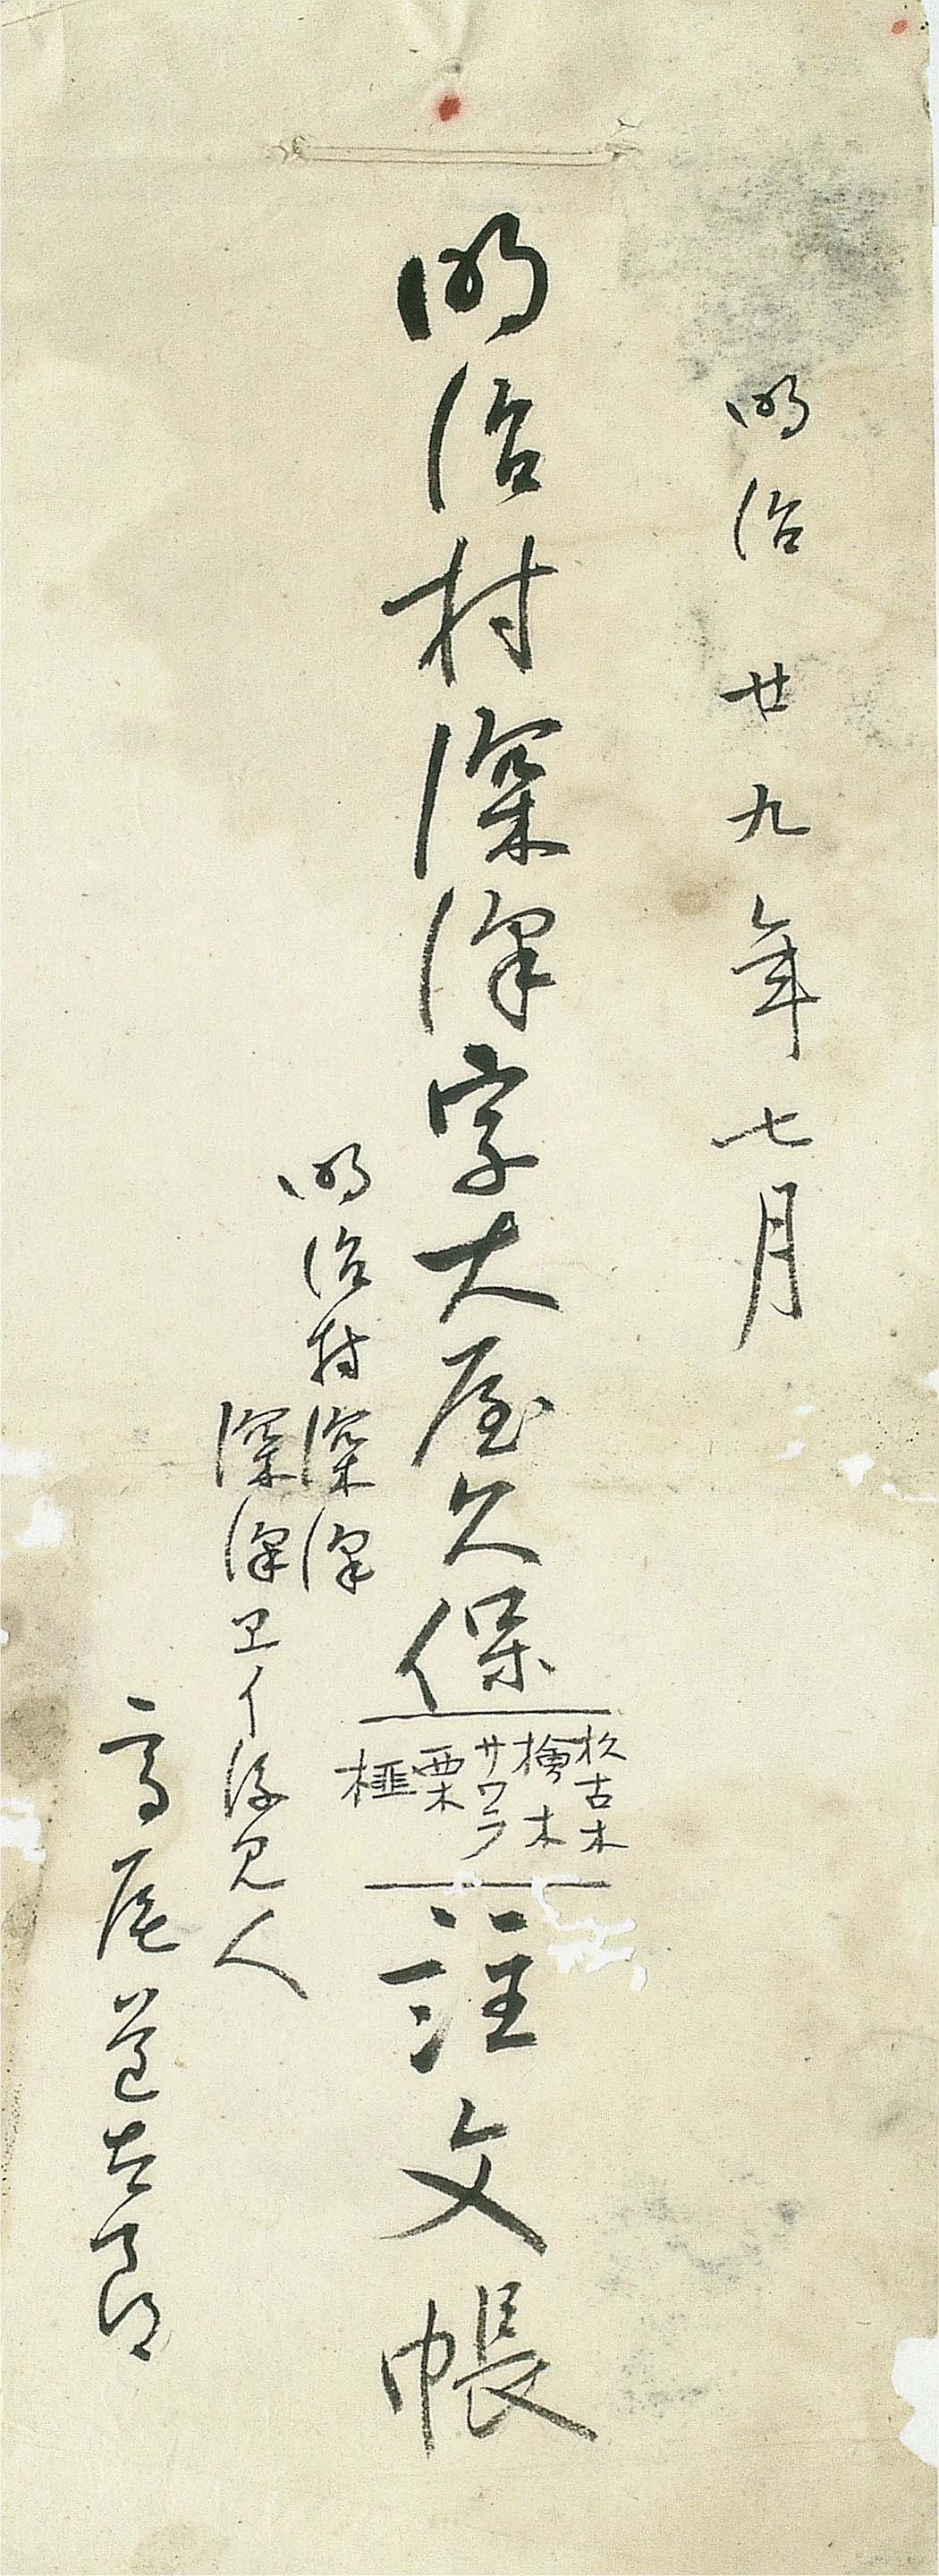 明治廿九年七月
明治村深澤字大屋久保
杦古木
檜木
サワラ
栗
榧
註文帳
明治村深澤
深澤
人
高尾道太郎